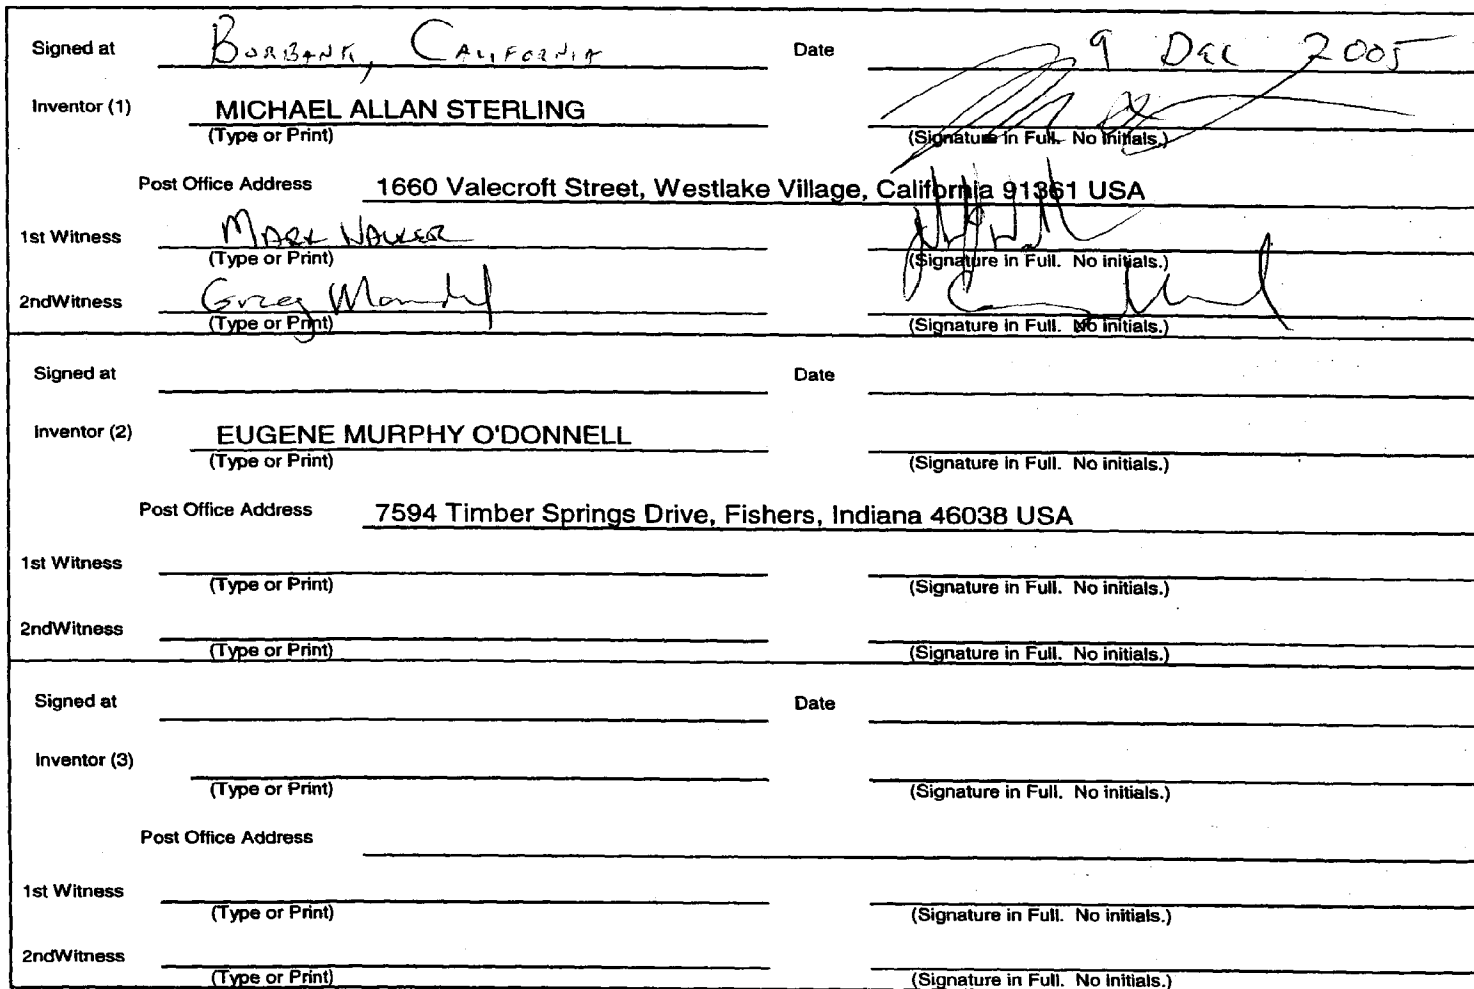 Signed at BURBANK, CALIFORNIA Date 9 DEC 2005
Inventor (1) MICHAEL ALLAN STERLING
(Type or Print) (Signature in Full. No initials.)
Post Office Address 1660 Valecroft Street, Westlake Village, California 91361 USA
1st Witness MARK WALKER
(Type or Print) (Signature in Full. No initials.)
2ndWitness Greg
(Type or Print) (Signature in Full. No initials.)
Signed at Date
Inventor (2) EUGENE MURPHY O'DONNELL
(Type or Print) (Signature in Full. No initials.)
Post Office Address 7594 Timber Springs Drive, Fishers, Indiana 46038 USA
1st Witness
(Type or Print) (Signature in Full. No initials.)
2ndWitness
(Type or Print) (Signature in Full. No initials.)
Signed at Date
Inventor (3)
(Type or Print) (Signature in Full. No initials.)
Post Office Address
1st Witness
(Type or Print) (Signature in Full. No initials.)
2ndWitness
(Type or Print) (Signature in Full. No initials.)